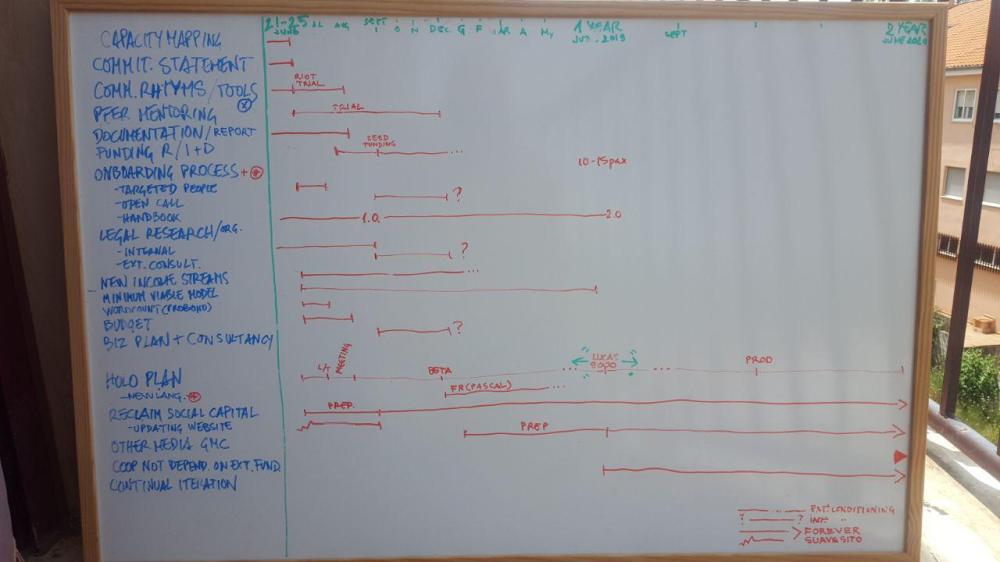 21-25 JUNE JUL AUG SEPT O N DEC G F MAR A M 1 YEAR JUL - 2019 SEPT 2 YEAR JUNE 2020
CAPACITY MAPPING
COMMIT. STATEMENT
COMM. RHYMS/TOOLS
RIOT TRIAL
PEER MENTORING
TRIAL
DOCUMENTATION/REPORT
FUNDING R/I+D
SEED FUNDING ...
10-15 pax
ONBOARDING PROCESS +
- TARGETED PEOPLE
- OPEN CALL ?
- HANDBOOK 1.0. 2.0
LEGAL RESEARCH/ORG.
- INTERNAL
- EXT. CONSULT. ?
NEW INCOME STREAMS ...
MINIMUM VIABLE MODEL
WORDCOUNT (PROBONO)
BUDGET
BIZ PLAN + CONSULTANCY ?
HOLO PLAN L/T MEETING BETA ... LUCAS ... PROD
- NEW LANG. FR (PASCAL) ...
RECLAIM SOCIAL CAPITAL PREP.
- UPDATING WEBSITE
OTHER MEDIA GMC PREP
COOP NOT DEPEND. ON EXT. FUND
CONTINUAL ITERATION
... EXT. CONDITIONING
? ? INT. "
> FOREVER
SUAVESITO